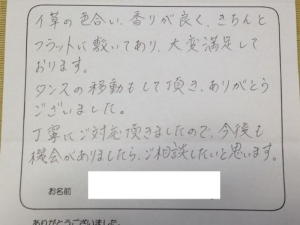 イ草の色合い、香りが良く、きちんと
フラットに敷いてあり、大変満足して
おります。
タンスの移動もして頂き、ありがとう
ございました。
丁寧にご対応頂きましたので、今後も
機会がありましたら、ご相談したいと思います。
お名前
ありがとうございました。